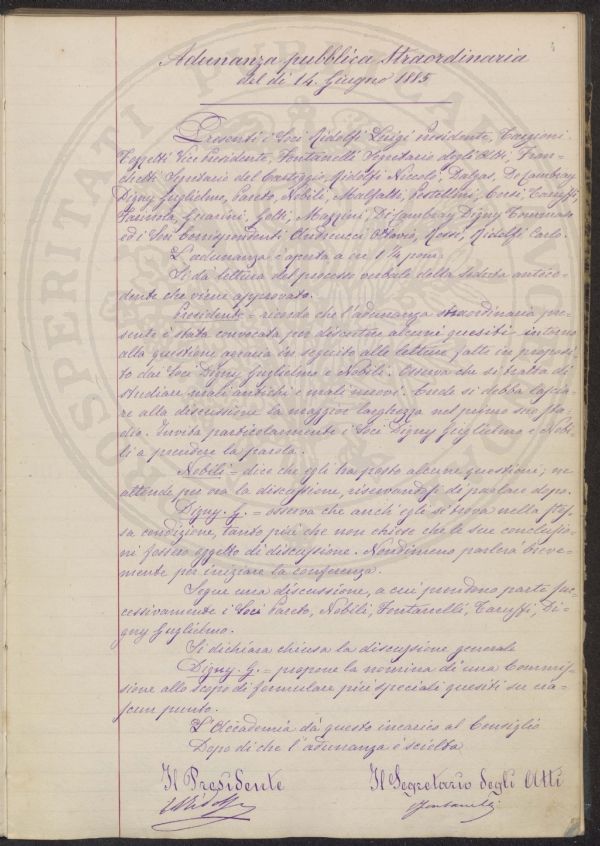 Adunanza pubblica Straordinaria
del dì 14. Giugno 1885
Presenti i Soci Ridolfi Luigi Presidente, Targioni
Tozzetti Vice Presidente, Fontanelli Segretario degli Atti, Fran=
chetti Segretario del Carteggio, Ridolfi Niccolò, Dalgas, De Cambray
Digny Guglielmo, Pareto, Nobili, Malfatti, Pestellini, Corsi, Caruffi,
Guarini, Mazzini, De Cambray Digny Tommaso
ed i Soci Corrispondenti Andreucci Ottavio, Rossi, Ridolfi Carlo.
L'adunanza è aperta a ore 1 1/4 pom.
Si dà lettura del processo verbale della seduta antece=
dente che viene approvato.
Presidente = ricorda che l'adunanza straordinaria pre=
sente è stata convocata per discutere alcuni quesiti intorno
alla questione agraria in seguito alle letture fatte in proposi=
to dai Soci Digny Guglielmo e Nobili. Osserva che si tratta di
studiare mali antichi e mali nuovi. Crede si debba lascia=
re alla discussione la maggior larghezza nel primo suo sta=
dio. Invita particolarmente i Soci Digny Guglielmo e Nobi=
li a prendere la parola.
Nobili = dice che egli ha posto alcune questioni; ne
attende per ora la discussione, riservandosi di parlare dopo.
Digny. G. = osserva che anch'egli si trova nella stes=
sa condizione, tanto più che non chiese che le sue conclusio=
ni fossero oggetto di discussione. Nondimeno parlerà breve=
mente per iniziare la conferenza.
Segue una discussione, a cui prendono parte suc=
cessivamente i Soci Pareto, Nobili, Fontanelli, Caruffi, Di=
gny Guglielmo.
Si dichiara chiusa la discussione generale
Digny. G. = propone la nomina di una Commis=
sione allo scopo di formulare più speciali quesiti su cia=
scun punto.
L'Accademia dà questo incarico al Consiglio
Dopo di che l'adunanza è sciolta
Il Presidente Il Segretario degli Atti
LRidolfi Fontanelli
PROSPERITATI PUBLICAE AUGENDAE